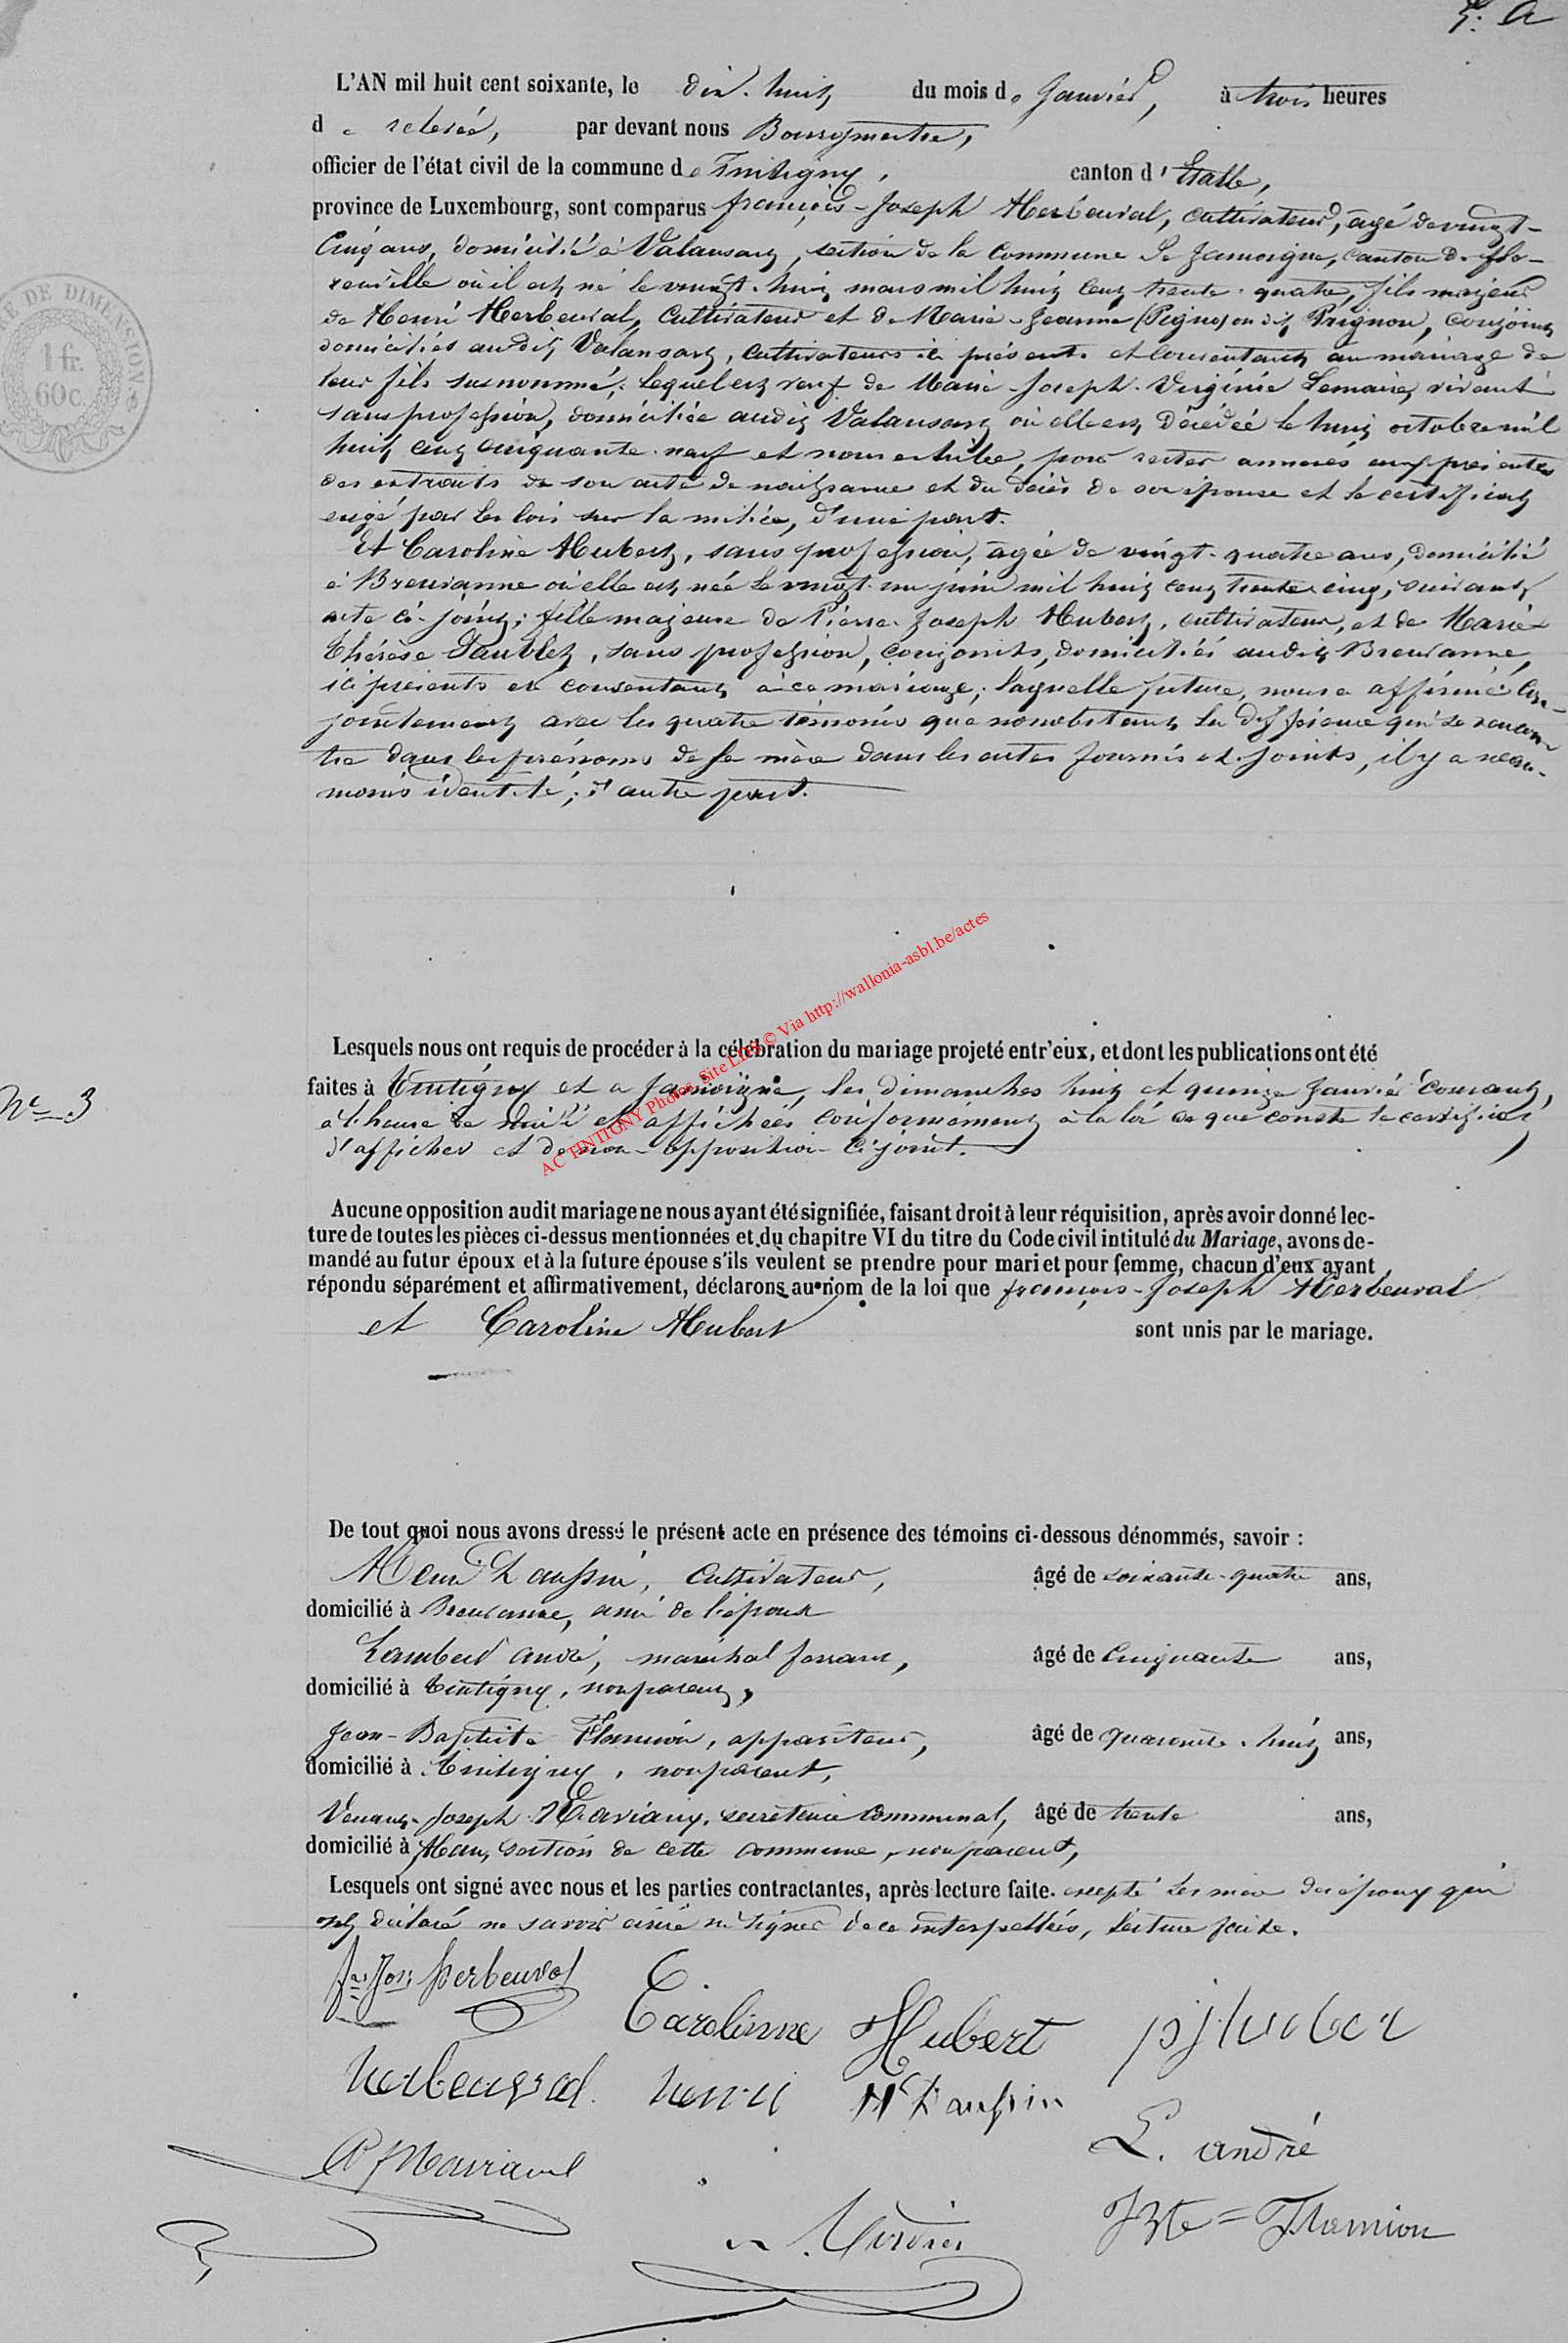 L'AN mil huit cent soixante, le dix-huit du mois de Janvier, à trois heures
de relevée, par devant nous Bourgmestre,
officier de l'état civil de la commune de Tintigny, canton d'Etalle,
province de Luxembourg, sont comparus françois-Joseph Herbeuval, cultivateur, agé de vingt-
Cinq ans, domicilié à Valansart, section de la Commune de Jamoigne, canton de flo-
renville où il est né le vingt-huit mars mil huit cent trente-quatre, fils majeur
de Henri Herbeuval, Cultivateur et de Marie-Jeanne (Pignoz) ou dit Prignon, conjoints
domiciliés audit Valansart, cultivateurs ici présents et consentants au mariage de
leur fils susnommé; lequel est veuf de Marie-Joseph-Virginie Lemaire, vivante
sans profession, domiciliée audit Valansart où elle est décédée le huit octobre mil
huit cent cinquante-neuf et nous exhibe, pour rester annexés aux présentes
des extraits de son acte de naissance et du décès de son épouse et le certificat
exigé par les lois sur la milice, d'une part.
Et Caroline Hubert, sans profession, âgée de vingt-quatre ans, domicilié
à Breuvanne où elle est née le vingt-un juin mil huit cent trente cinq, suivant
acte ci-joint; fille majeure de Pierre-Joseph Hubert, cultivateur, et de Marie-
Thérèse Saublet, sans profession, conjoints, domiciliés audit Breuvanne,
ici présents et consentants à ce mariage; laquelle future, nous a affirmé con-
jointement avec les quatre témoins que nonobstant la différence qui se rencon-
tre dans les prénoms de sa mère dans les actes fournis et joints, il y a néan-
moins identité; d'autre part.
AC TINTIGNY Photos Site LDH © Via http://wallonia-asbl.be/actes
Lesquels nous ont requis de procéder à la célébration du mariage projeté entr'eux, et dont les publications ont été
Nº 3
faites à Tintigny et a Jamoigne, les dimanches huit et quinze Janvier courant,
à l'heure de midi et affichées conformément à la loi ce que conste le certificat
d'affiches et de non-opposition ci-joint.
Aucune opposition audit mariage ne nous ayant été signifiée, faisant droit à leur réquisition, après avoir donné lec-
ture de toutes les pièces ci-dessus mentionnées et du chapitre VI du titre du Code civil intitulé du Mariage, avons de-
mandé au futur époux et à la future épouse s'ils veulent se prendre pour mari et pour femme, chacun d'eux ayant
répondu séparément et affirmativement, déclarons au nom de la loi que françois-Joseph Herbeuval
et Caroline Hubert sont unis par le mariage.
De tout quoi nous avons dressé le présent acte en présence des témoins ci-dessous dénommés, savoir :
Henri Laussin, Cultivateur, âgé de soixante-quatre ans,
domicilié à Breuvanne, ami de l'époux
Lambert André, maréchal ferrant, âgé de Cinquante ans,
domicilié à Tintigny, non parent,
Jean-Baptiste Flamion, appariteur, âgé de quarante-huit ans,
domicilié à Tintigny, non parent,
Venant-Joseph Maviany, secrétaire Communal, âgé de trente ans,
domicilié à Han, section de cette commune, non parent,
Lesquels ont signé avec nous et les parties contractantes, après lecture faite. excepté les mères des époux qui
ont déclaré ne savoir écrire ni signer de ce interpellées, lecture faite.
fs. Jos. herbeuval
Carolinne Hubert pj huber
herbeuval henri H Laussin
L. andré
JBte = Flamion
MINISTÈRE DE DIMENSION
1 fr.
60 c.